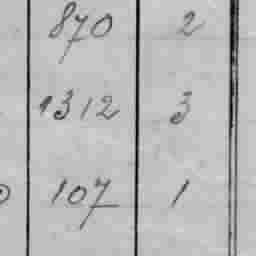 870 2
1312 3
107 1